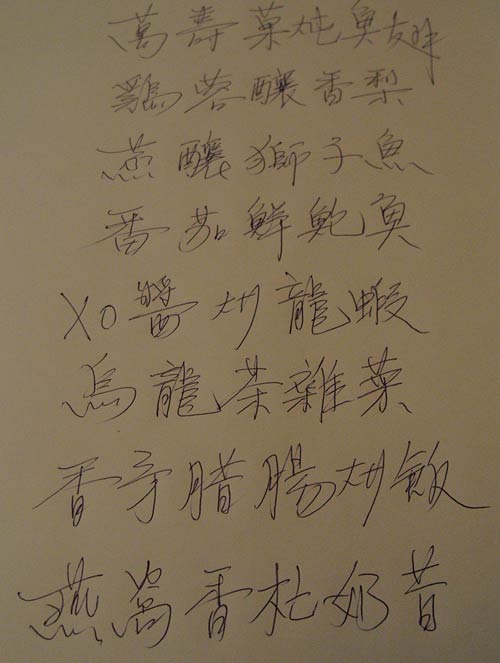 萬壽菓炖魚翅
鷄蓉釀香梨
蒸釀獅子魚
番茄鮮鮑魚
XO醬炒龍蝦
烏龍茶雜菜
香芋腊腸炒飯
燕窩香杧奶昔